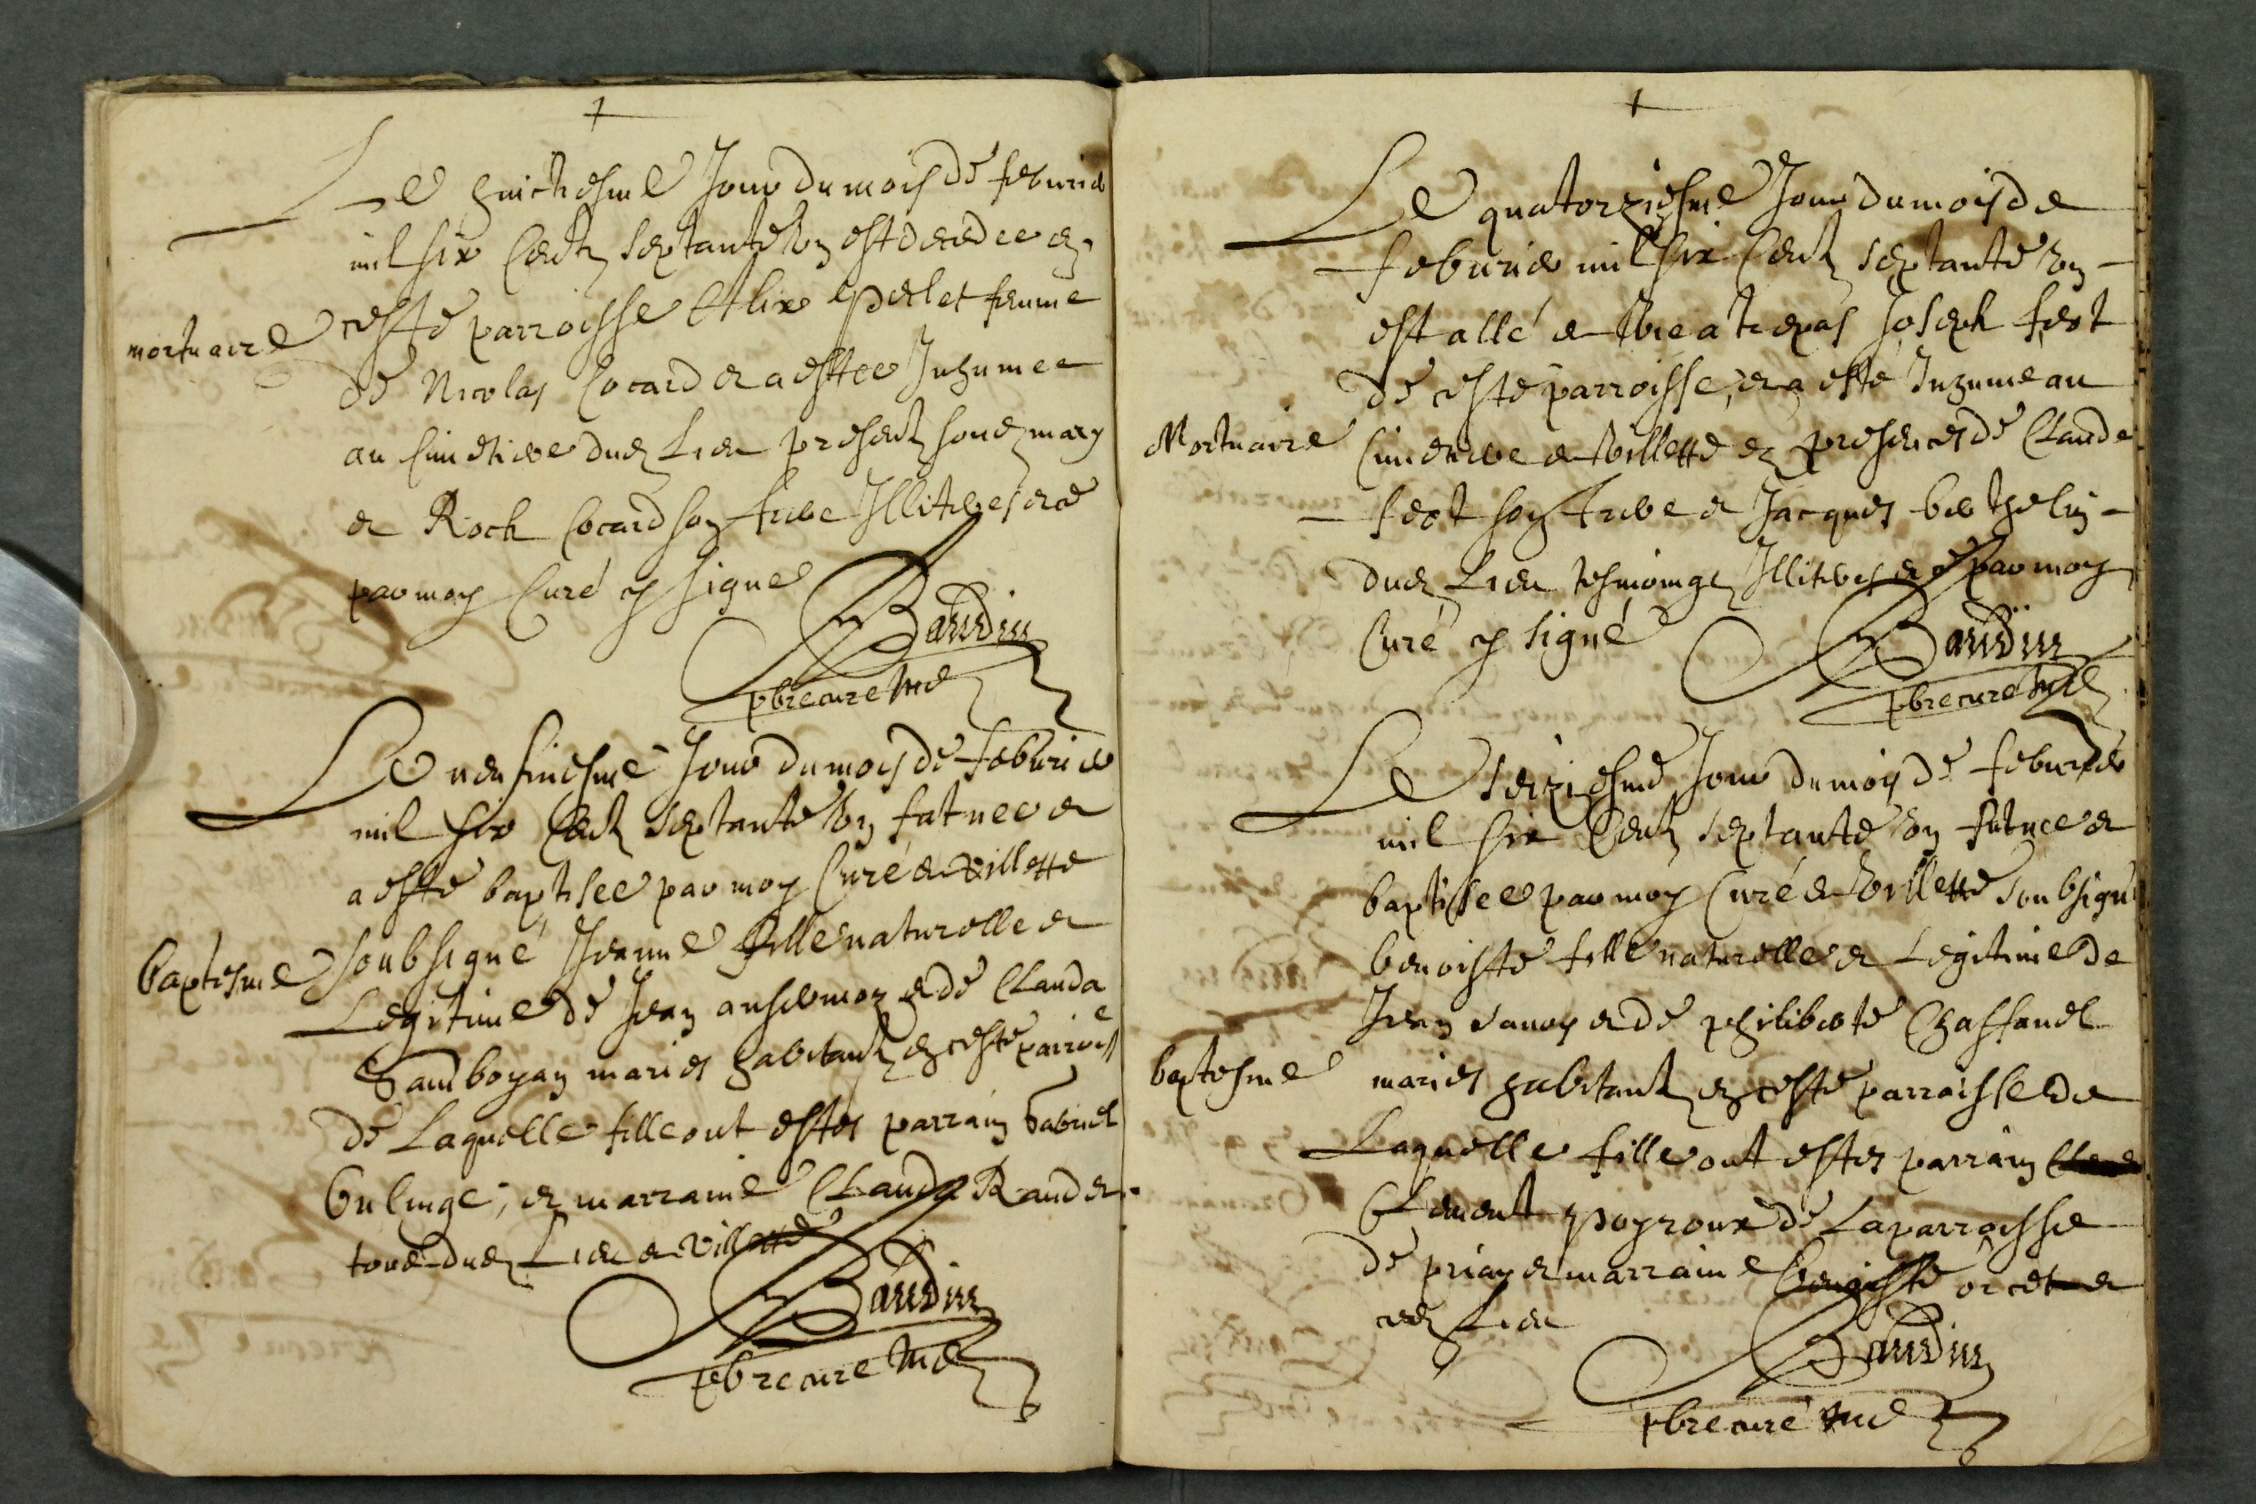 Le huictiesme Jour du mois de feburier
mil six Centz septante Un est decedee en
mortuaire
ceste parroisse Alix Perlet femme
de Nicolas Cocard et a estee Inhumee
au Cimetiere dud Lieu presentz soud mary
et Roch Cocard son frere Illiteres et ce
par moy Curé cy signe
Baudin
pbre curé
Le neufiesme Jour du mois de feburier
mil six Centz septante Un fut nee et
a esté baptisee par moy Curé de Villette
baptesme
soubsigné Jeanne fille naturelle et
Legitime de Jean et de Clauda
mariés habitantz en ceste parroisse
de Laquelle fille ont estes parrain Gabriel
Bulinge, et marraine Clauda
dud Lieu de Villette
Baudin
pbre cure
Le quatorziesme Jour du mois de
feburier mil six Centz septante Un
est allé de Vie a trepas Joseph
de ceste parroisse, et a esté Inhume au
Mortuaire
Cimetiere de Villette en presences de Claude
son frere et Jacques Berthelin
dud Lieu tesmoings Illiteres et ce par moy
Curé cy signé
Baudin
pbre curé
Le seiziesme Jour du mois de feburier
mil six Centz septante Un fut nee et
baptisee par moy Curé de Villette soubsigné
benoiste fille naturelle et Legitime de
Jean et de philiberte Chaffanel
baptesme
mariés habitantz en ceste parroisse de
Laquelle fille ont estes parrain
Clement Poyroux de La parroisse
de priay et marraine benoiste de
ced Lieu
Baudin
pbre curé